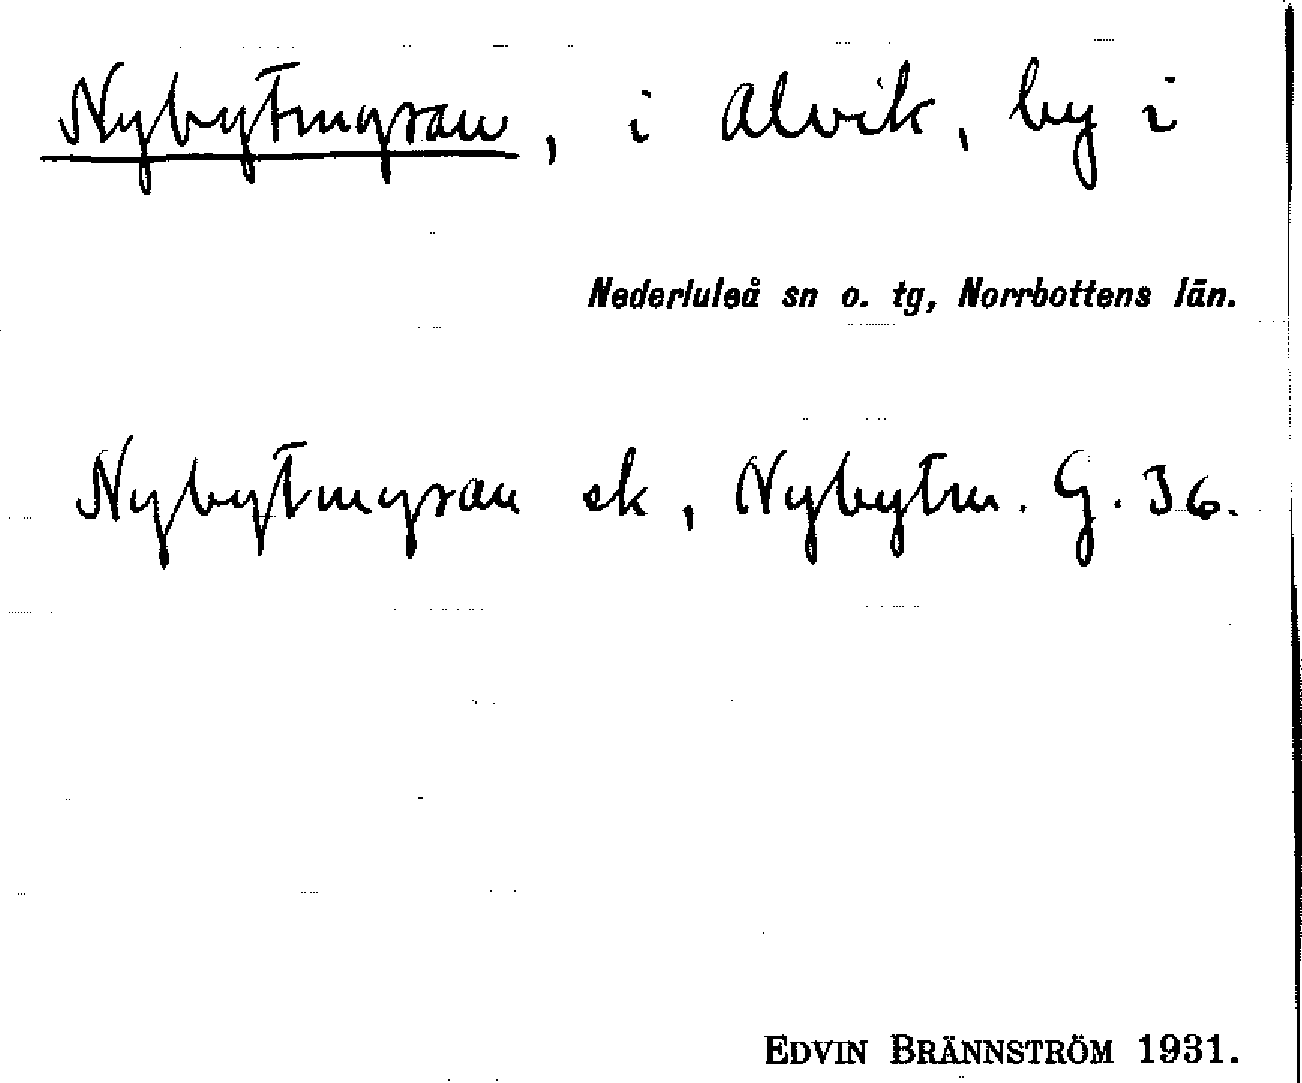 Nybytmyran, i Alvik, by i
Nederluleå sn o. tg, Norrbottens län.
Nybytmyran ek, Nybytm. G. 36.
EDVIN BRÄNNSTRÖM 1931.